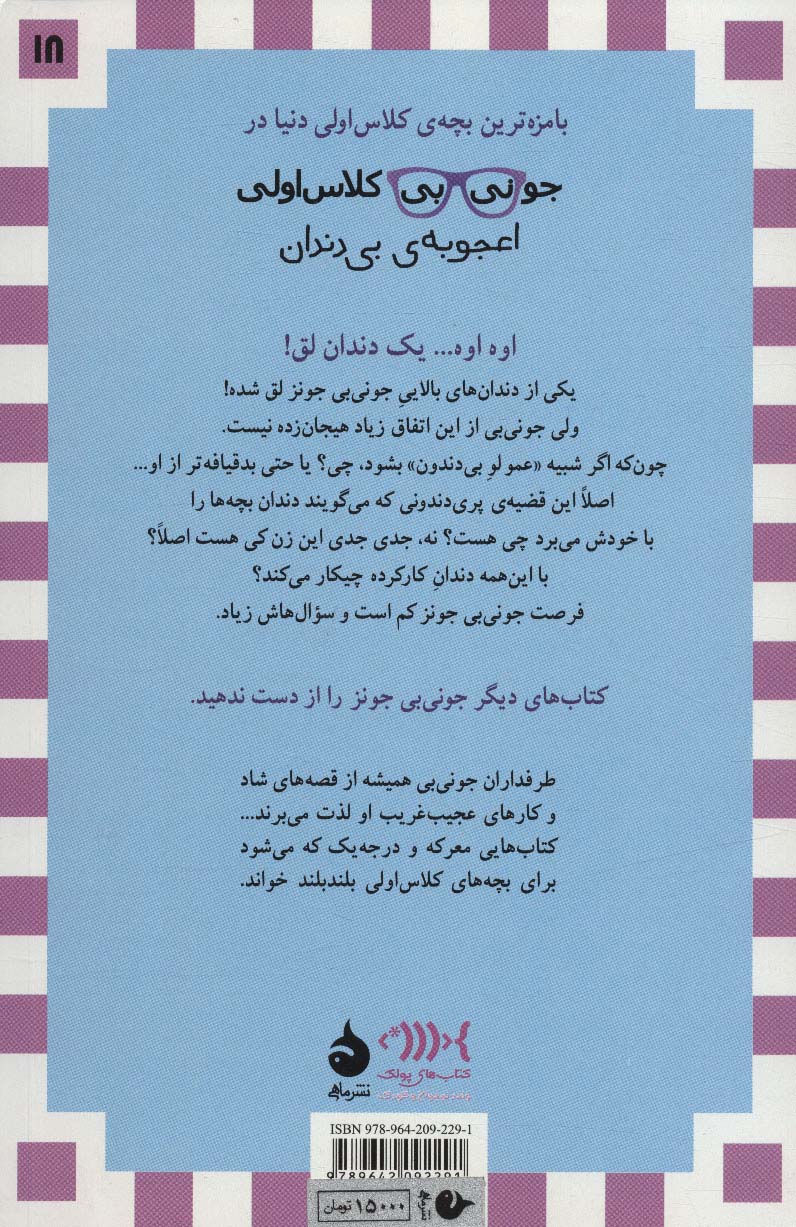 ۱۸
بامزه‌ترین بچه‌ی کلاس‌اولی دنیا در
جونی بی کلاس‌اولی
اعجوبه‌ی بی‌دندان
اوه اوه... یک دندان لق!
یکی از دندان‌های بالاییِ جونی‌بی جونز لق شده!
ولی جونی‌بی از این اتفاق زیاد هیجان‌زده نیست.
چون‌که اگر شبیه «عمو لوِ بی‌دندون» بشود، چی؟ یا حتی بدقیافه‌تر از او...
اصلاً این قضیه‌ی پری‌دندونی که می‌گویند دندان بچه‌ها را
با خودش می‌برد چی هست؟ نه، جدی جدی این زن کی هست اصلاً؟
با این‌همه دندانِ کارکرده چیکار می‌کند؟
فرصت جونی‌بی جونز کم است و سؤال‌هاش زیاد.
کتاب‌های دیگر جونی‌بی جونز را از دست ندهید.
طرفداران جونی‌بی همیشه از قصه‌های شاد
و کارهای عجیب‌غریب او لذت می‌برند...
کتاب‌هایی معرکه و درجه‌یک که می‌شود
برای بچه‌های کلاس‌اولی بلندبلند خواند.
کتاب‌های پولک
نشر ماهی
ISBN 978-964-209-229-1
9789642092291
۱۵۰۰۰ تومان
نشر ماهی